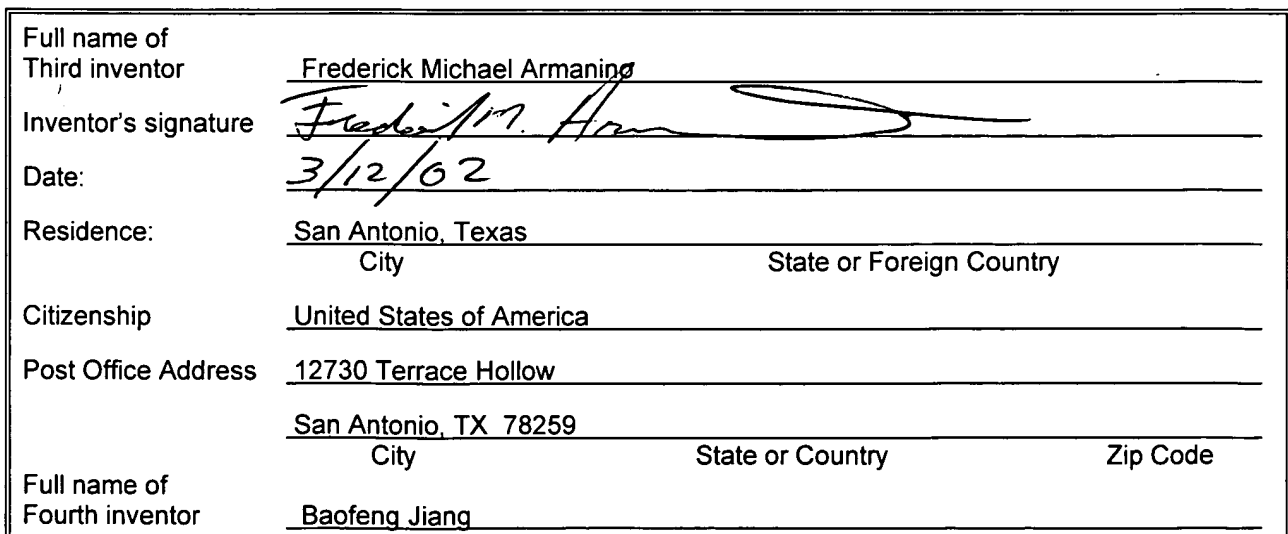 Full name of
Third inventor Frederick Michael Armanino
Inventor's signature Frederick M. Arm
Date: 3/12/02
Residence: San Antonio, Texas
City State or Foreign Country
Citizenship United States of America
Post Office Address 12730 Terrace Hollow
San Antonio, TX 78259
City State or Country Zip Code
Full name of
Fourth inventor Baofeng Jiang